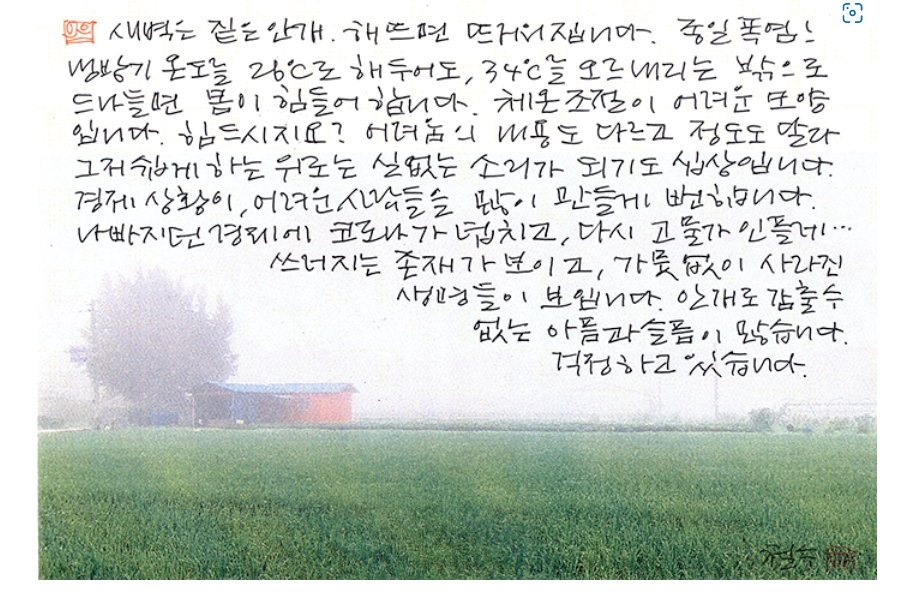 새벽는 짙은 안개. 해뜨면 뜨거워집니다. 종일 폭염.
냉방기 온도를 26℃로 해두어도, 34℃를 오르내리는 밖으로
드나들면 몸이 힘들어 합니다. 체온조절이 어려운 모양
입니다. 힘드시지요? 어려움의 내용도 다르고 정도도 달라
그저 쉽게 하는 위로는 실없는 소리가 되기도 십상입니다.
경제 상황이, 어려운 사람들을 많이 만들게 뻔합니다.
나빠지던 경제에 코로나가 덮치고, 다시 고물가 인플레…
쓰러지는 존재가 보이고, 가뭇없이 사라진
생명들이 보입니다. 안개로 감출 수
없는 아픔과 슬픔이 많습니다.
걱정하고 있습니다.
철수